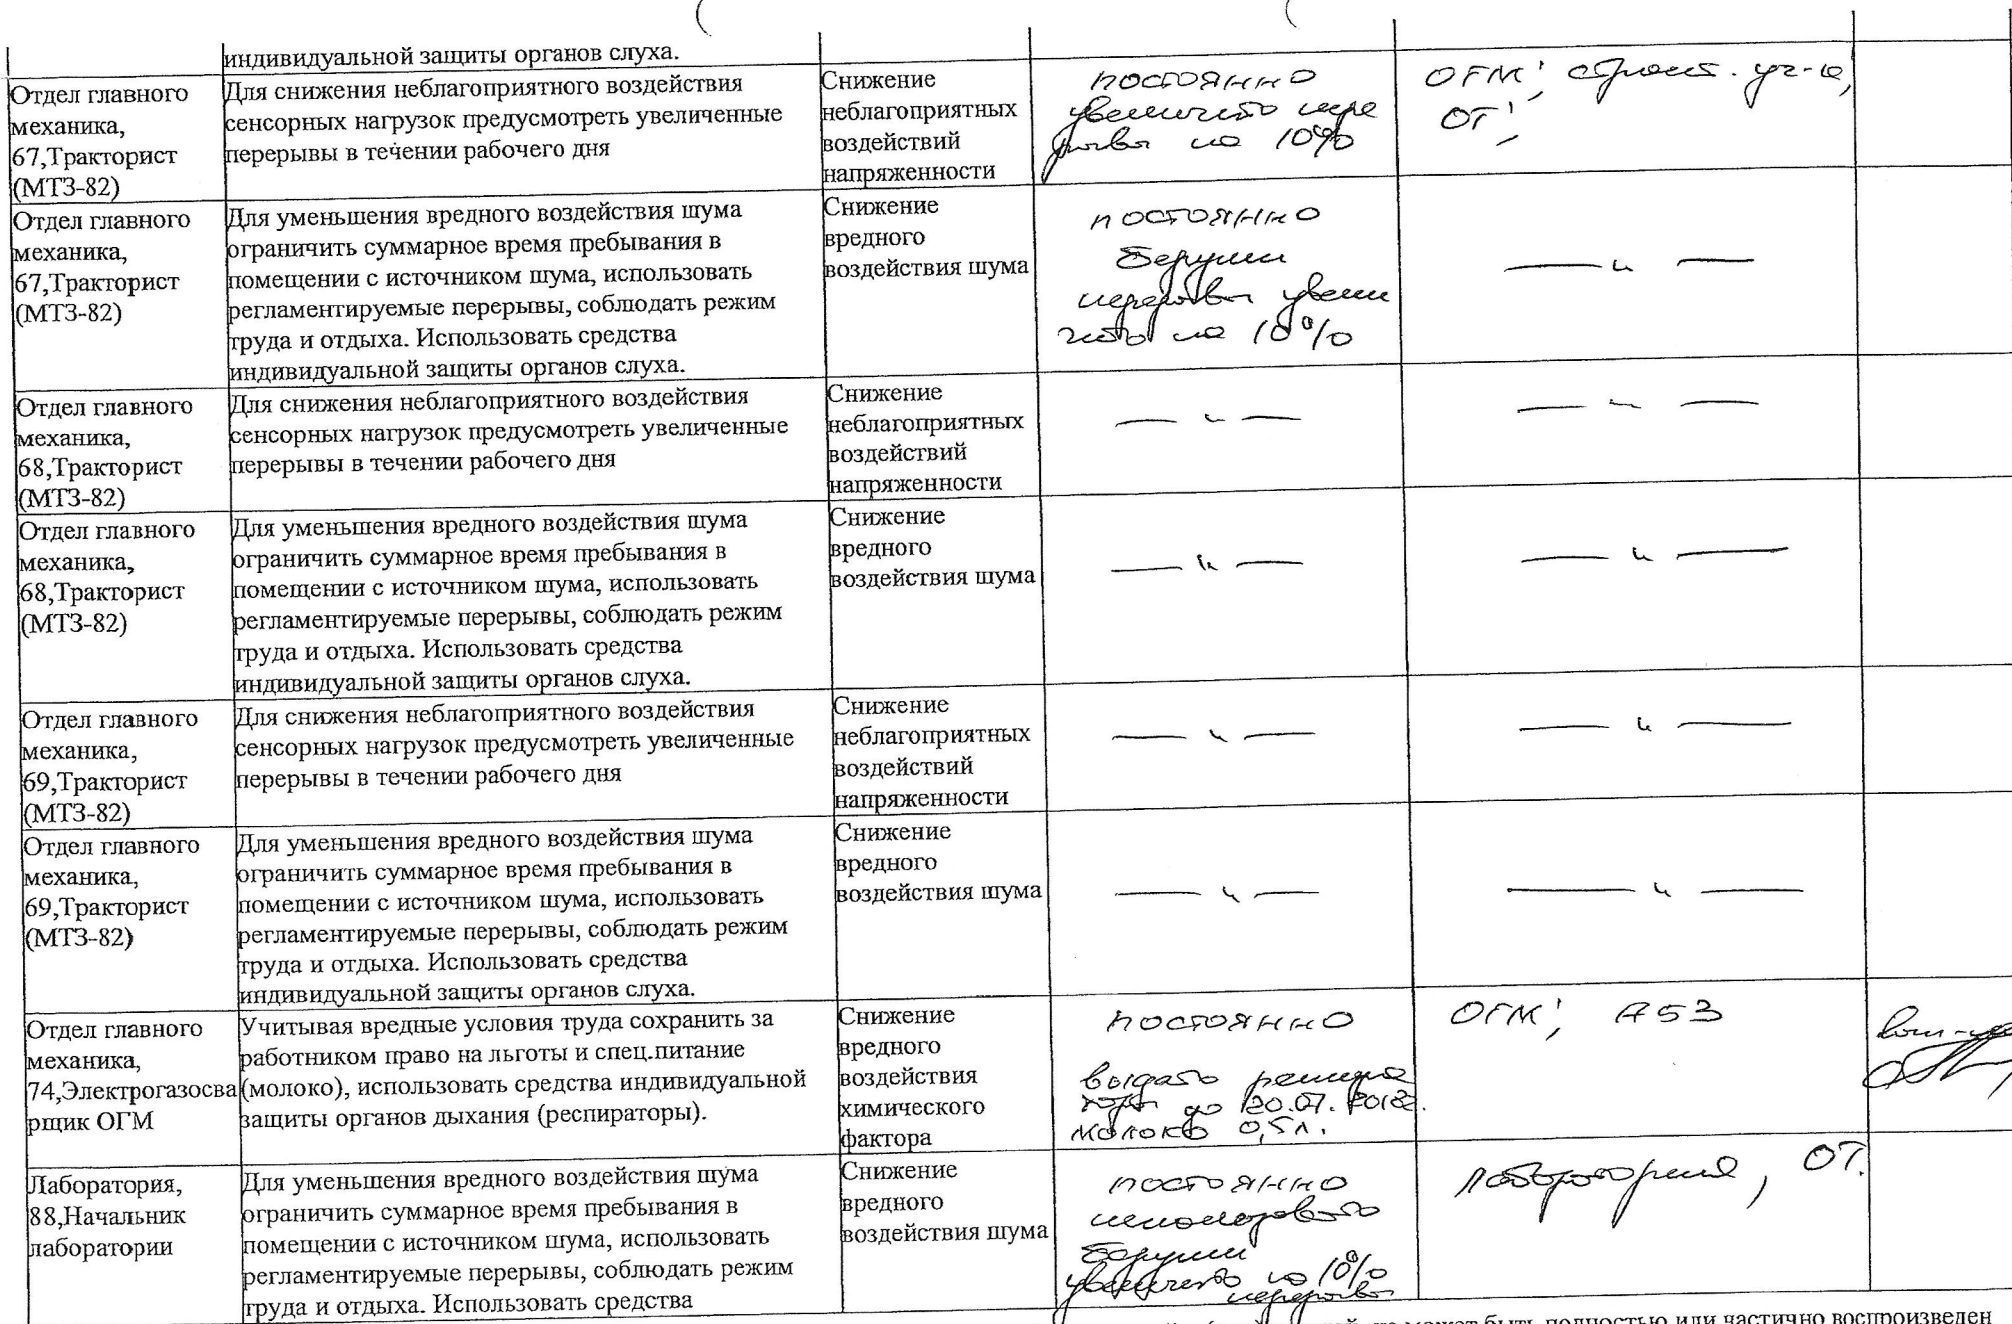 индивидуальной защиты органов слуха.
Отдел главного
механика,
67,Тракторист
(МТЗ-82)
Для снижения неблагоприятного воздействия
сенсорных нагрузок предусмотреть увеличенные
перерывы в течении рабочего дня
Снижение
неблагоприятных
воздействий
напряженности
постоянно
увеличить пере
рывы на 10%
ОГМ, строит. уч-к,
ОТ,
Отдел главного
механика,
67,Тракторист
(МТЗ-82)
Для уменьшения вредного воздействия шума
ограничить суммарное время пребывания в
помещении с источником шума, использовать
регламентируемые перерывы, соблюдать режим
труда и отдыха. Использовать средства
индивидуальной защиты органов слуха.
Снижение
вредного
воздействия шума
постоянно
Беруши
перерывы увели
чить на 10%
— " —
Отдел главного
механика,
68,Тракторист
(МТЗ-82)
Для снижения неблагоприятного воздействия
сенсорных нагрузок предусмотреть увеличенные
перерывы в течении рабочего дня
Снижение
неблагоприятных
воздействий
напряженности
— " —
— " —
Отдел главного
механика,
68,Тракторист
(МТЗ-82)
Для уменьшения вредного воздействия шума
ограничить суммарное время пребывания в
помещении с источником шума, использовать
регламентируемые перерывы, соблюдать режим
труда и отдыха. Использовать средства
индивидуальной защиты органов слуха.
Снижение
вредного
воздействия шума
— " —
— " —
Отдел главного
механика,
69,Тракторист
(МТЗ-82)
Для снижения неблагоприятного воздействия
сенсорных нагрузок предусмотреть увеличенные
перерывы в течении рабочего дня
Снижение
неблагоприятных
воздействий
напряженности
— " —
— " —
Отдел главного
механика,
69,Тракторист
(МТЗ-82)
Для уменьшения вредного воздействия шума
ограничить суммарное время пребывания в
помещении с источником шума, использовать
регламентируемые перерывы, соблюдать режим
труда и отдыха. Использовать средства
индивидуальной защиты органов слуха.
Снижение
вредного
воздействия шума
— " —
— " —
Отдел главного
механика,
74,Электрогазосва
рщик ОГМ
Учитывая вредные условия труда сохранить за
работником право на льготы и спец.питание
(молоко), использовать средства индивидуальной
защиты органов дыхания (респираторы).
Снижение
вредного
воздействия
химического
фактора
постоянно
выдать респира
торы до 20.07.
молоко 0,5л.
ОГМ,
Лаборатория,
88,Начальник
лаборатории
Для уменьшения вредного воздействия шума
ограничить суммарное время пребывания в
помещении с источником шума, использовать
регламентируемые перерывы, соблюдать режим
труда и отдыха. Использовать средства
Снижение
вредного
воздействия шума
постоянно
использовать
Беруши
увеличить на 10%
перерывы
лаборатория, ОТ.
может быть полностью или частично воспроизведен